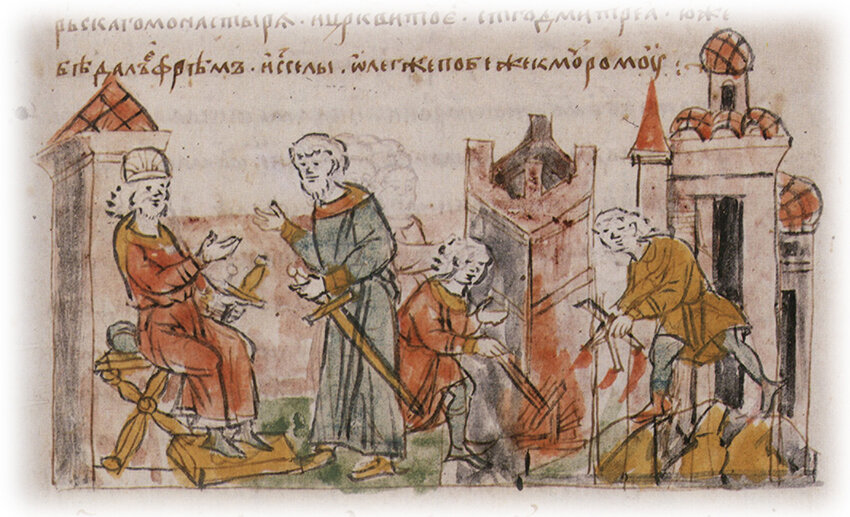 рьскаго монастырѧ . и цркви тоє . ст҃го дмитреѧ . юже
бѣ далъ ефрѣмъ . и с селы . ѡлег же побеже к муромоу :